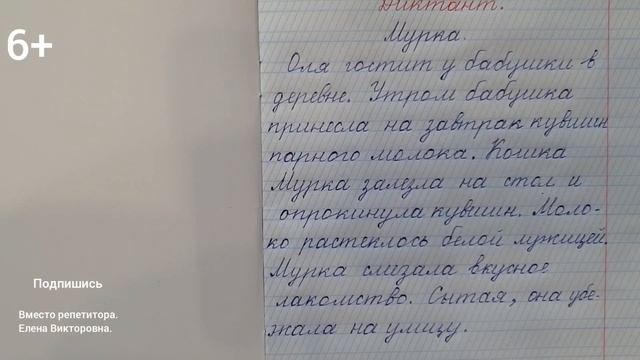 6+
Диктант.
Мурка.
Оля гостит у бабушки в
деревне. Утром бабушка
принесла на завтрак кувшин
парного молока. Кошка
Мурка залезла на стол и
опрокинула кувшин. Моло-
ко растеклось белой лужицей.
Мурка слизала вкусное
лакомство. Сытая, она убе-
жала на улицу.
Подпишись
Вместо репетитора.
Елена Викторовна.